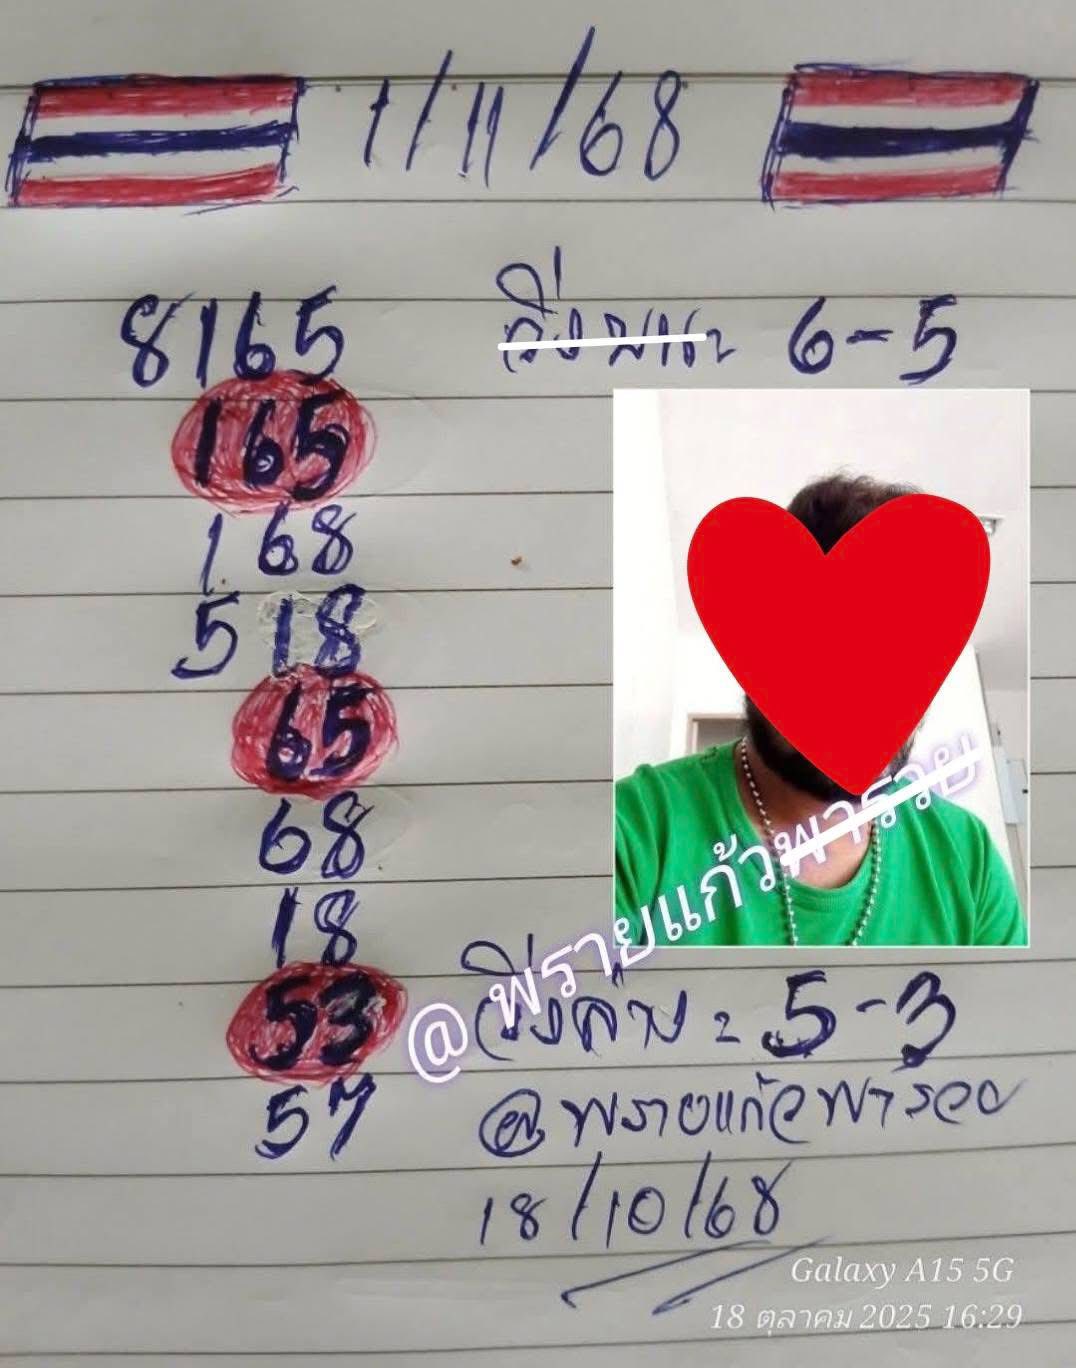 1/11/68
8165
วิ่งบน = 6-5
165
168
518
65
68
18
@พรายแก้วพารวย
53
วิ่งล่าง = 5-3
57
@พรายแก้วพารวย
18/10/68
Galaxy A15 5G
18 ตุลาคม 2025 16:29